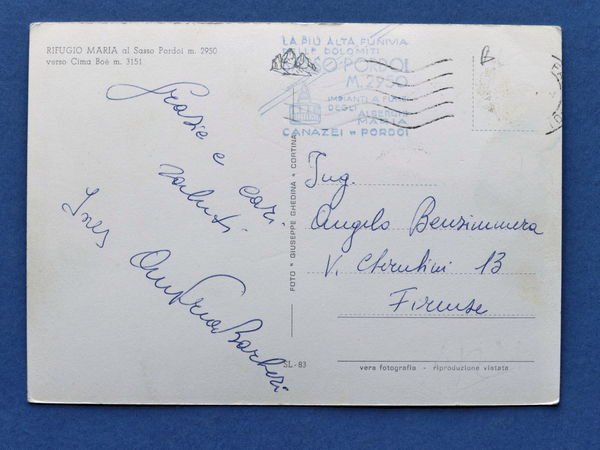 RIFUGIO MARIA al Sasso Pordoi m. 2950
verso Cima Boè m. 3151
LA PIÙ ALTA FUNIVIA
DELLE DOLOMITI
SASSO PORDOI
M. 2950
IMPIANTI A FUNE
DEGLI ALBERGHI
MARIA
CANAZEI PORDOI
Grazie e cari
saluti
Ines
Barberi
FOTO * GIUSEPPE GHEDINA * CORTINA
SL-83
Ing.
Angelo Benzimmera
V. Cherubini 13
Firenze
vera fotografia - riproduzione vietata